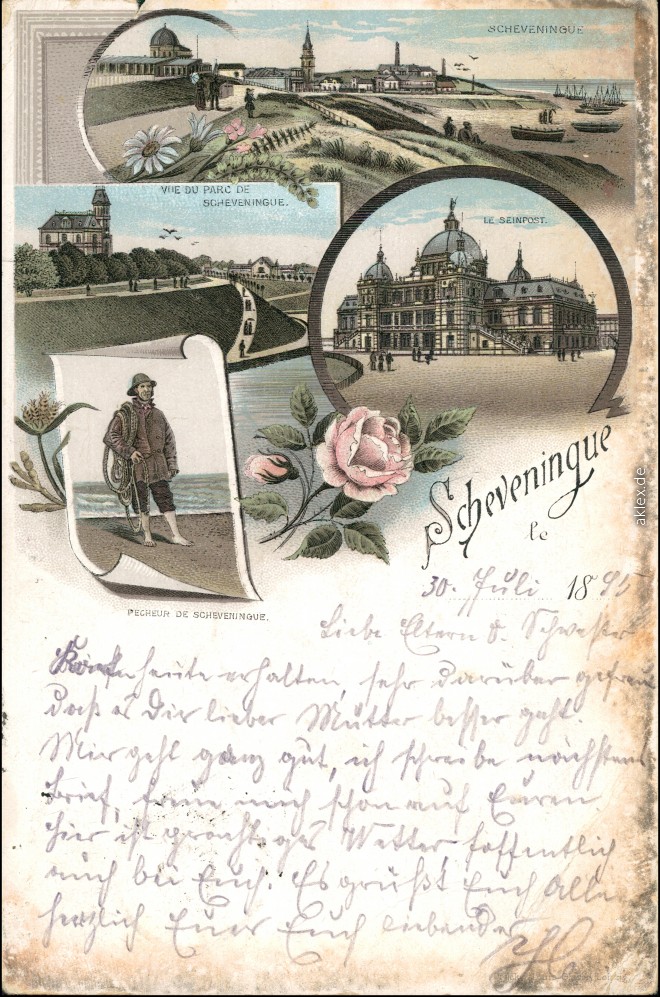 SCHEVENINGUE
VUE DU PARC DE
SCHEVENINGUE.
LE SEINPOST.
Scheveningue
le
30. Juli 1895
PECHEUR DE SCHEVENINGUE.
Liebe Eltern u. Schwester
heute erhalten, sehr darüber gefreut
daß es Dir lieber Mutter besser geht.
Mir geht ganz gut, ich schreibe nächstens
Brief, freue mich schon auf Euren
hier ist prachtvolles Wetter, hoffentlich
auch bei Euch. Es grüßt Euch Alle
herzlich Euer Euch liebender
aklex.de